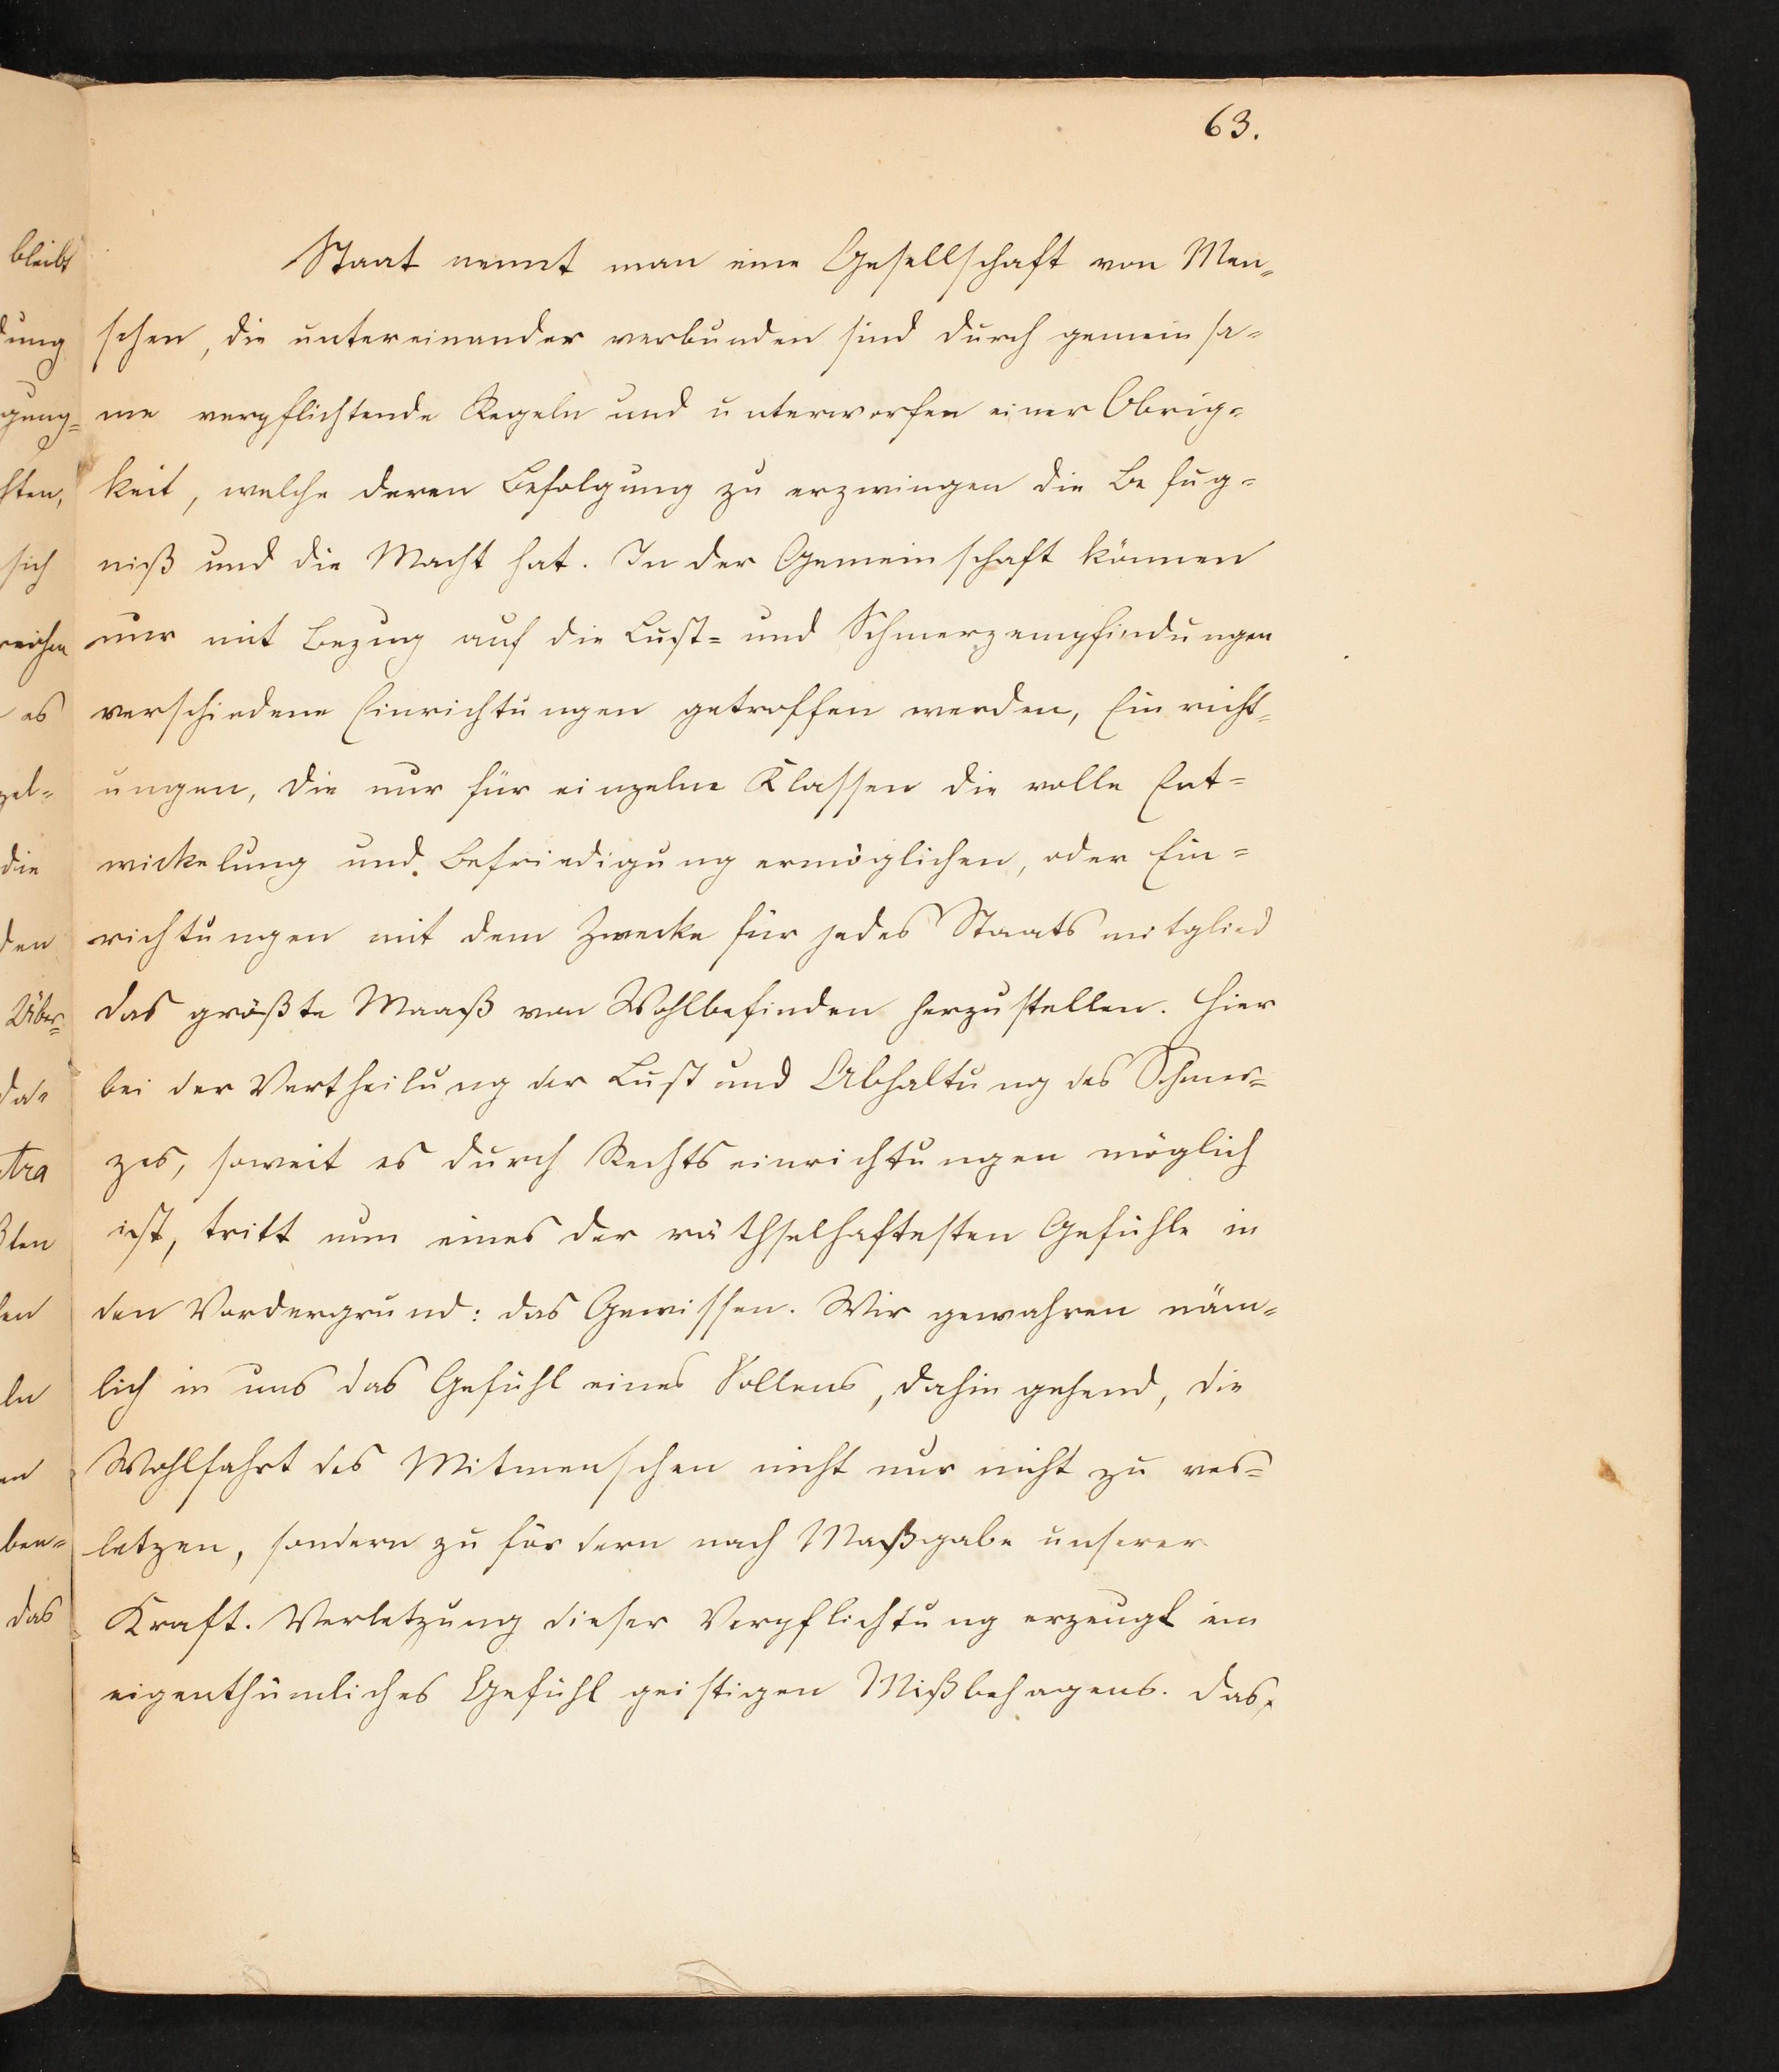 63.
Staat nennt man eine Gesellschaft von Men-
schen, die untereinander verbunden sind durch gemeinsa-
me verpflichtende Regeln und unterworfen einer Obrig-
keit, welche deren Befolgung zu erzwingen die Befug-
niß und die Macht hat. In der Gemeinschaft können
nur mit Bezug auf die Lust- und Schmerzempfindungen
verschiedene Einrichtungen getroffen werden, Einricht-
ungen, die nur für einzelne Klassen die volle Ent-
wickelung und Befriedigung ermöglichen, oder Ein-
richtungen mit dem Zwecke für jedes Staatsmitglied
das größte Maaß von Wohlbefinden herzustellen. Hier
bei der Vertheilung der Lust und Abhaltung des Schmer-
zes, soweit es durch Rechtseinrichtungen möglich
ist, tritt nun eines der räthselhaftesten Gefühle in
den Vordergrund: das Gewissen. Wir gewahren näm-
lich in uns das Gefühl eines Sollens, dahin gehend, die
Wohlfahrt des Mitmenschen nicht nur nicht zu ver-
letzen, sondern zu fördern nach Maßgabe unserer
Kraft. Verletzung dieser Verpflichtung erzeugt ein
eigenthümliches Gefühl geistigen Mißbehagens. Das
bleibt
dung
gung-
sten,
sich
reichen
es
zel-
die
den
Über-
da-
tra
ßten
en
ln
en
ben-
das